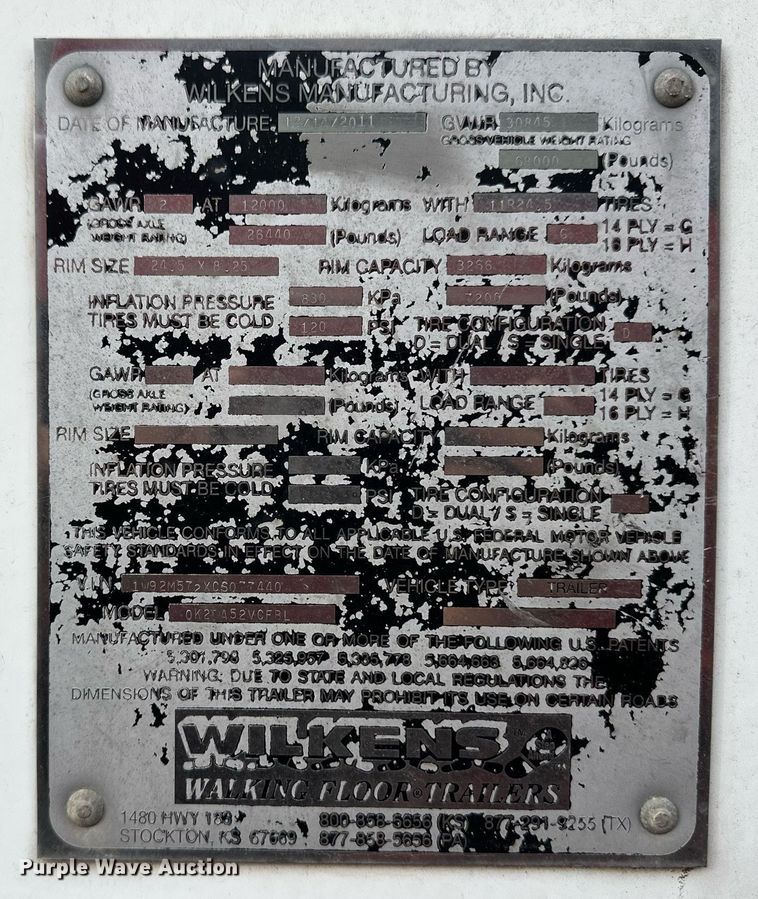 MANUFACTURED BY
WILKENS MANUFACTURING, INC.
DATE OF MANUFACTURE: 2011 GVWR 30845 Kilograms
GROSS VEHICLE WEIGHT RATING
68000 (Pounds)
GAWR 2 AT 12000 Kilograms WITH 11R24.5 TIRES
(GROSS AXLE WEIGHT RATING) 26440 (Pounds) LOAD RANGE G 14 PLY = G
16 PLY = H
RIM SIZE 24.5 X 8.25 RIM CAPACITY 3266 Kilograms
INFLATION PRESSURE 830 KPa 7200 (Pounds)
TIRES MUST BE COLD 120 PSI TIRE CONFIGURATION D
D = DUAL / S = SINGLE
GAWR AT Kilograms WITH TIRES
(GROSS AXLE WEIGHT RATING) (Pounds) LOAD RANGE 14 PLY = G
16 PLY = H
RIM SIZE RIM CAPACITY Kilograms
INFLATION PRESSURE KPa (Pounds)
TIRES MUST BE COLD PSI TIRE CONFIGURATION
D = DUAL / S = SINGLE
THIS VEHICLE CONFORMS TO ALL APPLICABLE U.S. FEDERAL MOTOR VEHICLE
SAFETY STANDARDS IN EFFECT ON THE DATE OF MANUFACTURE SHOWN ABOVE
V.I.N. VEHICLE TYPE TRAILER
MODEL
MANUFACTURED UNDER ONE OR MORE OF THE FOLLOWING U.S. PATENTS
WARNING: DUE TO STATE AND LOCAL REGULATIONS THE
DIMENSIONS OF THIS TRAILER MAY PROHIBIT ITS USE ON CERTAIN ROADS
WILKENS
WALKING FLOOR TRAILERS
1480 HWY 800-858-5656 (KS) 877-291-9255 (TX)
STOCKTON, KS 67669 877-858-5656 (PA)
Purple Wave Auction